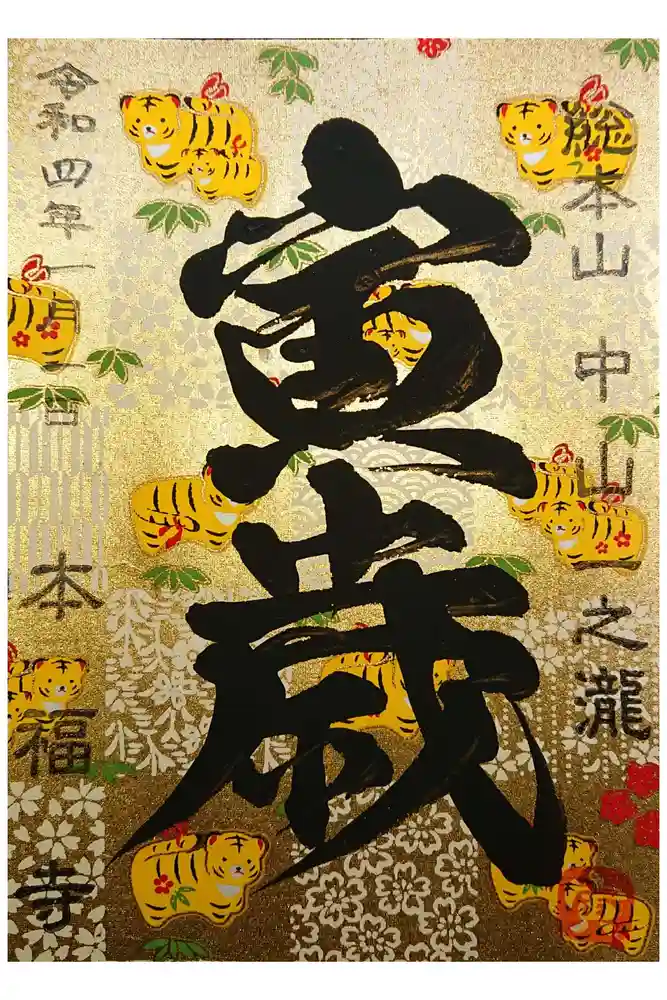 総本山 中山一之瀧
寅歳
令和四年一月一日
本福寺